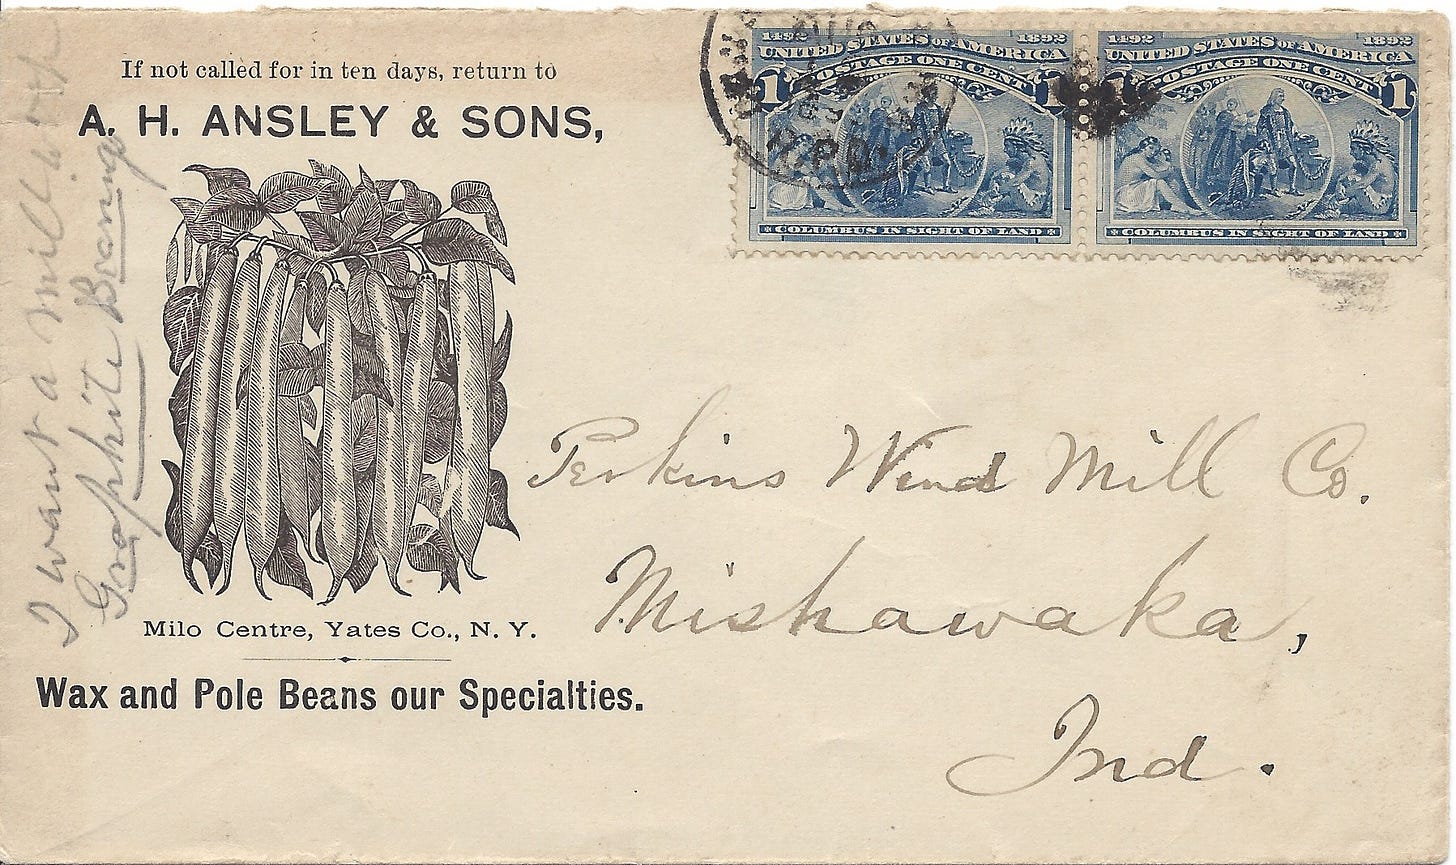 If not called for in ten days, return to
A. H. ANSLEY & SONS,
Milo Centre, Yates Co., N. Y.
Wax and Pole Beans our Specialties.
I want a mill with
Graphite Bearings
1492 1892
UNITED STATES OF AMERICA
POSTAGE ONE CENT
1 1
COLUMBUS IN SIGHT OF LAND
1492 1892
UNITED STATES OF AMERICA
POSTAGE ONE CENT
1
COLUMBUS IN SIGHT OF LAND
Perkins Wind Mill Co.
Mishawaka,
Ind.